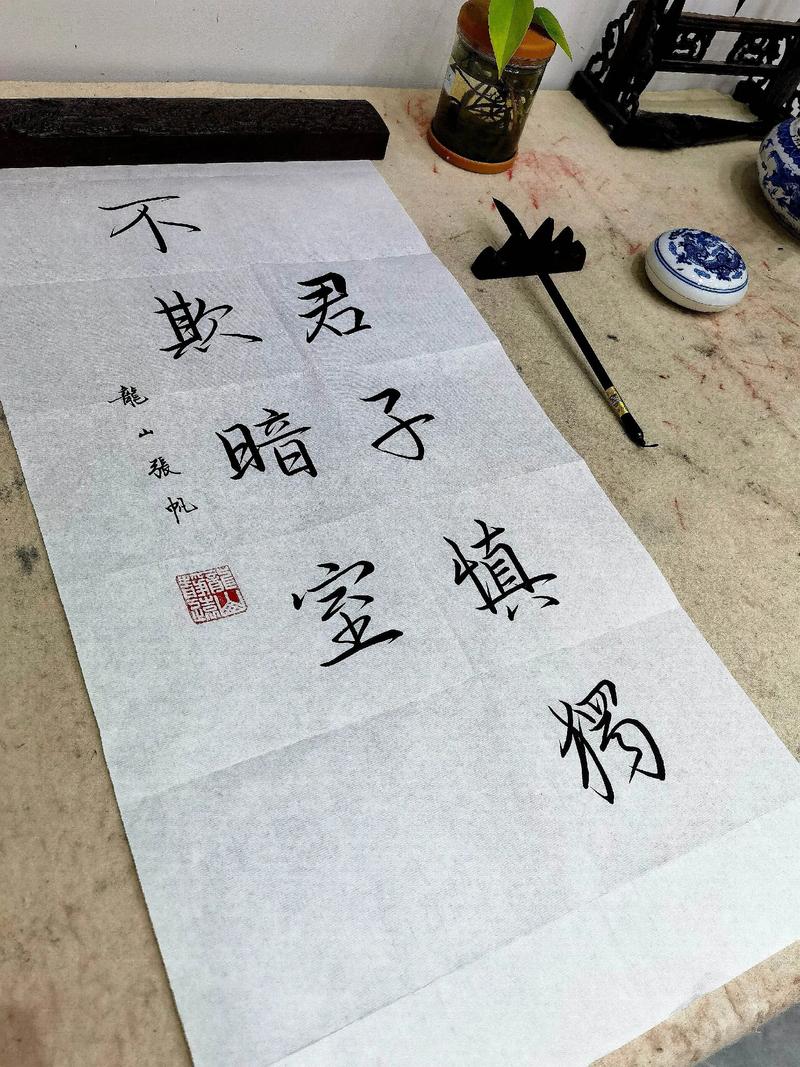 君子慎獨
不欺暗室
龍山張帆